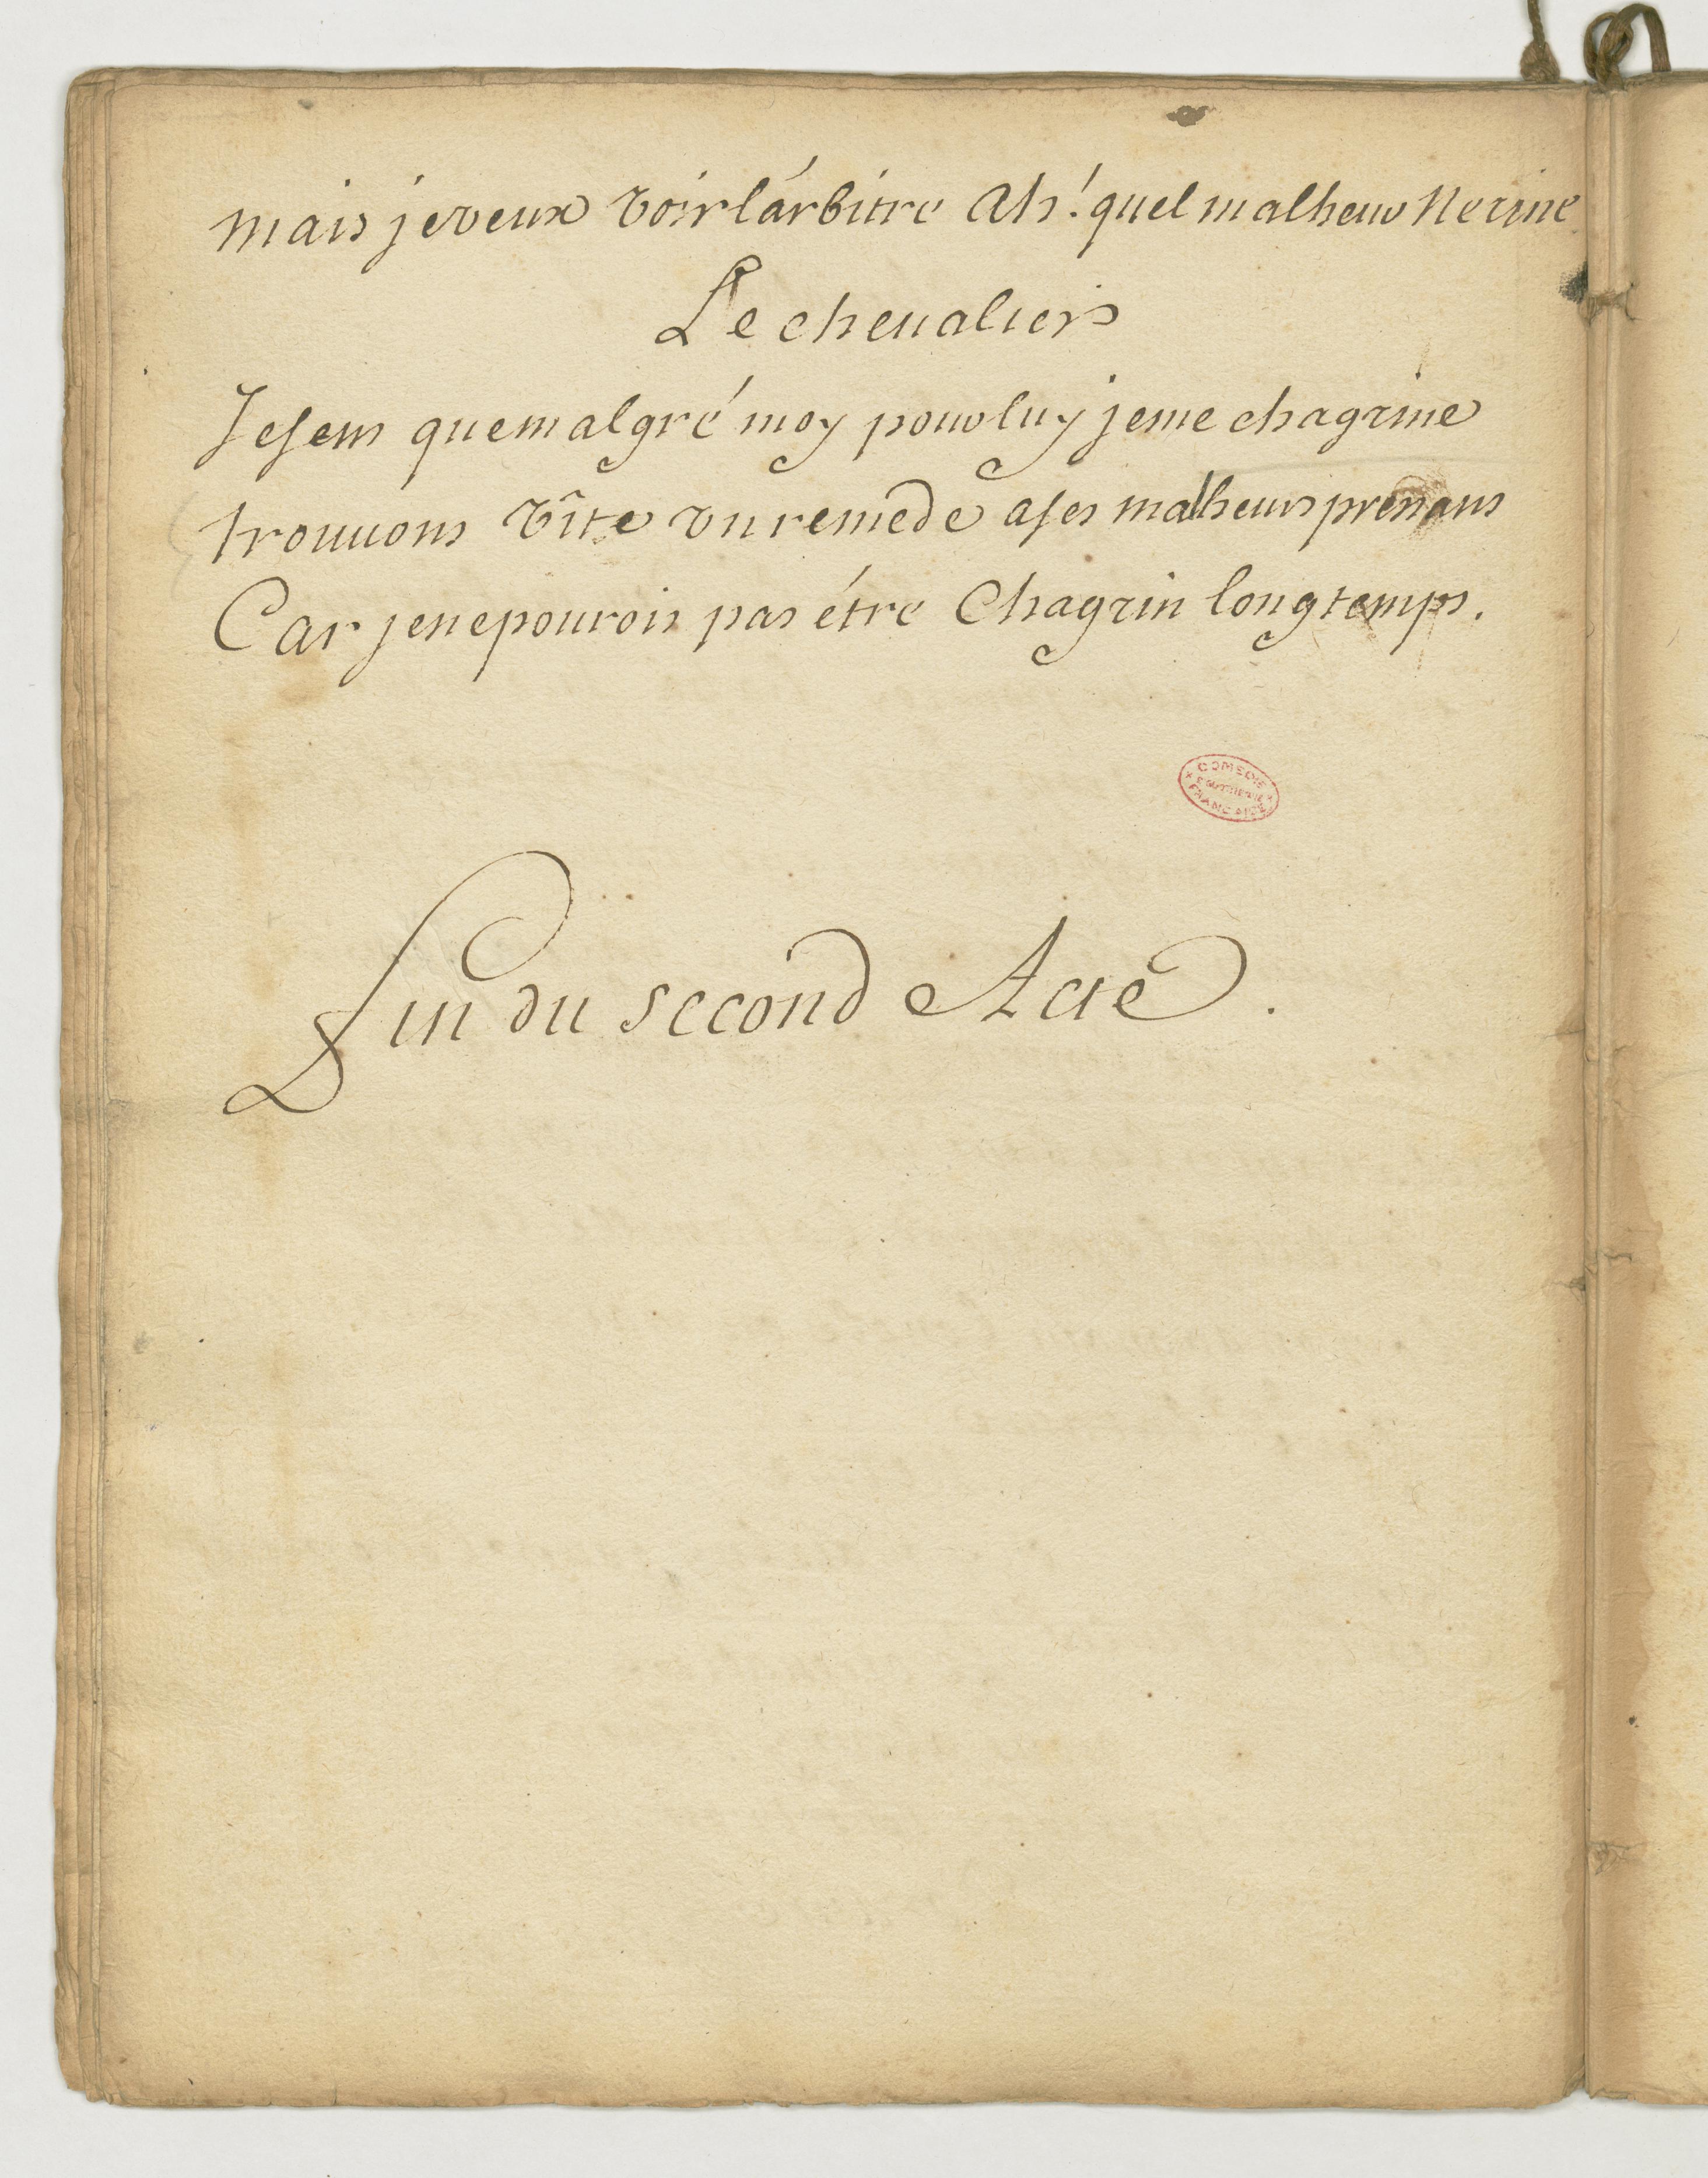 mais je veux voir l'arbitre Ah! quel malheur Nerine
Le chevalier
Je sens que malgré moy pour luy je me chagrine
trouuons vîte vn remede a ses malheurs prenans
Car je ne pourois pas étre Chagrin longtemps.
COMEDIE
FRANCAISE
Fin du second Acte.